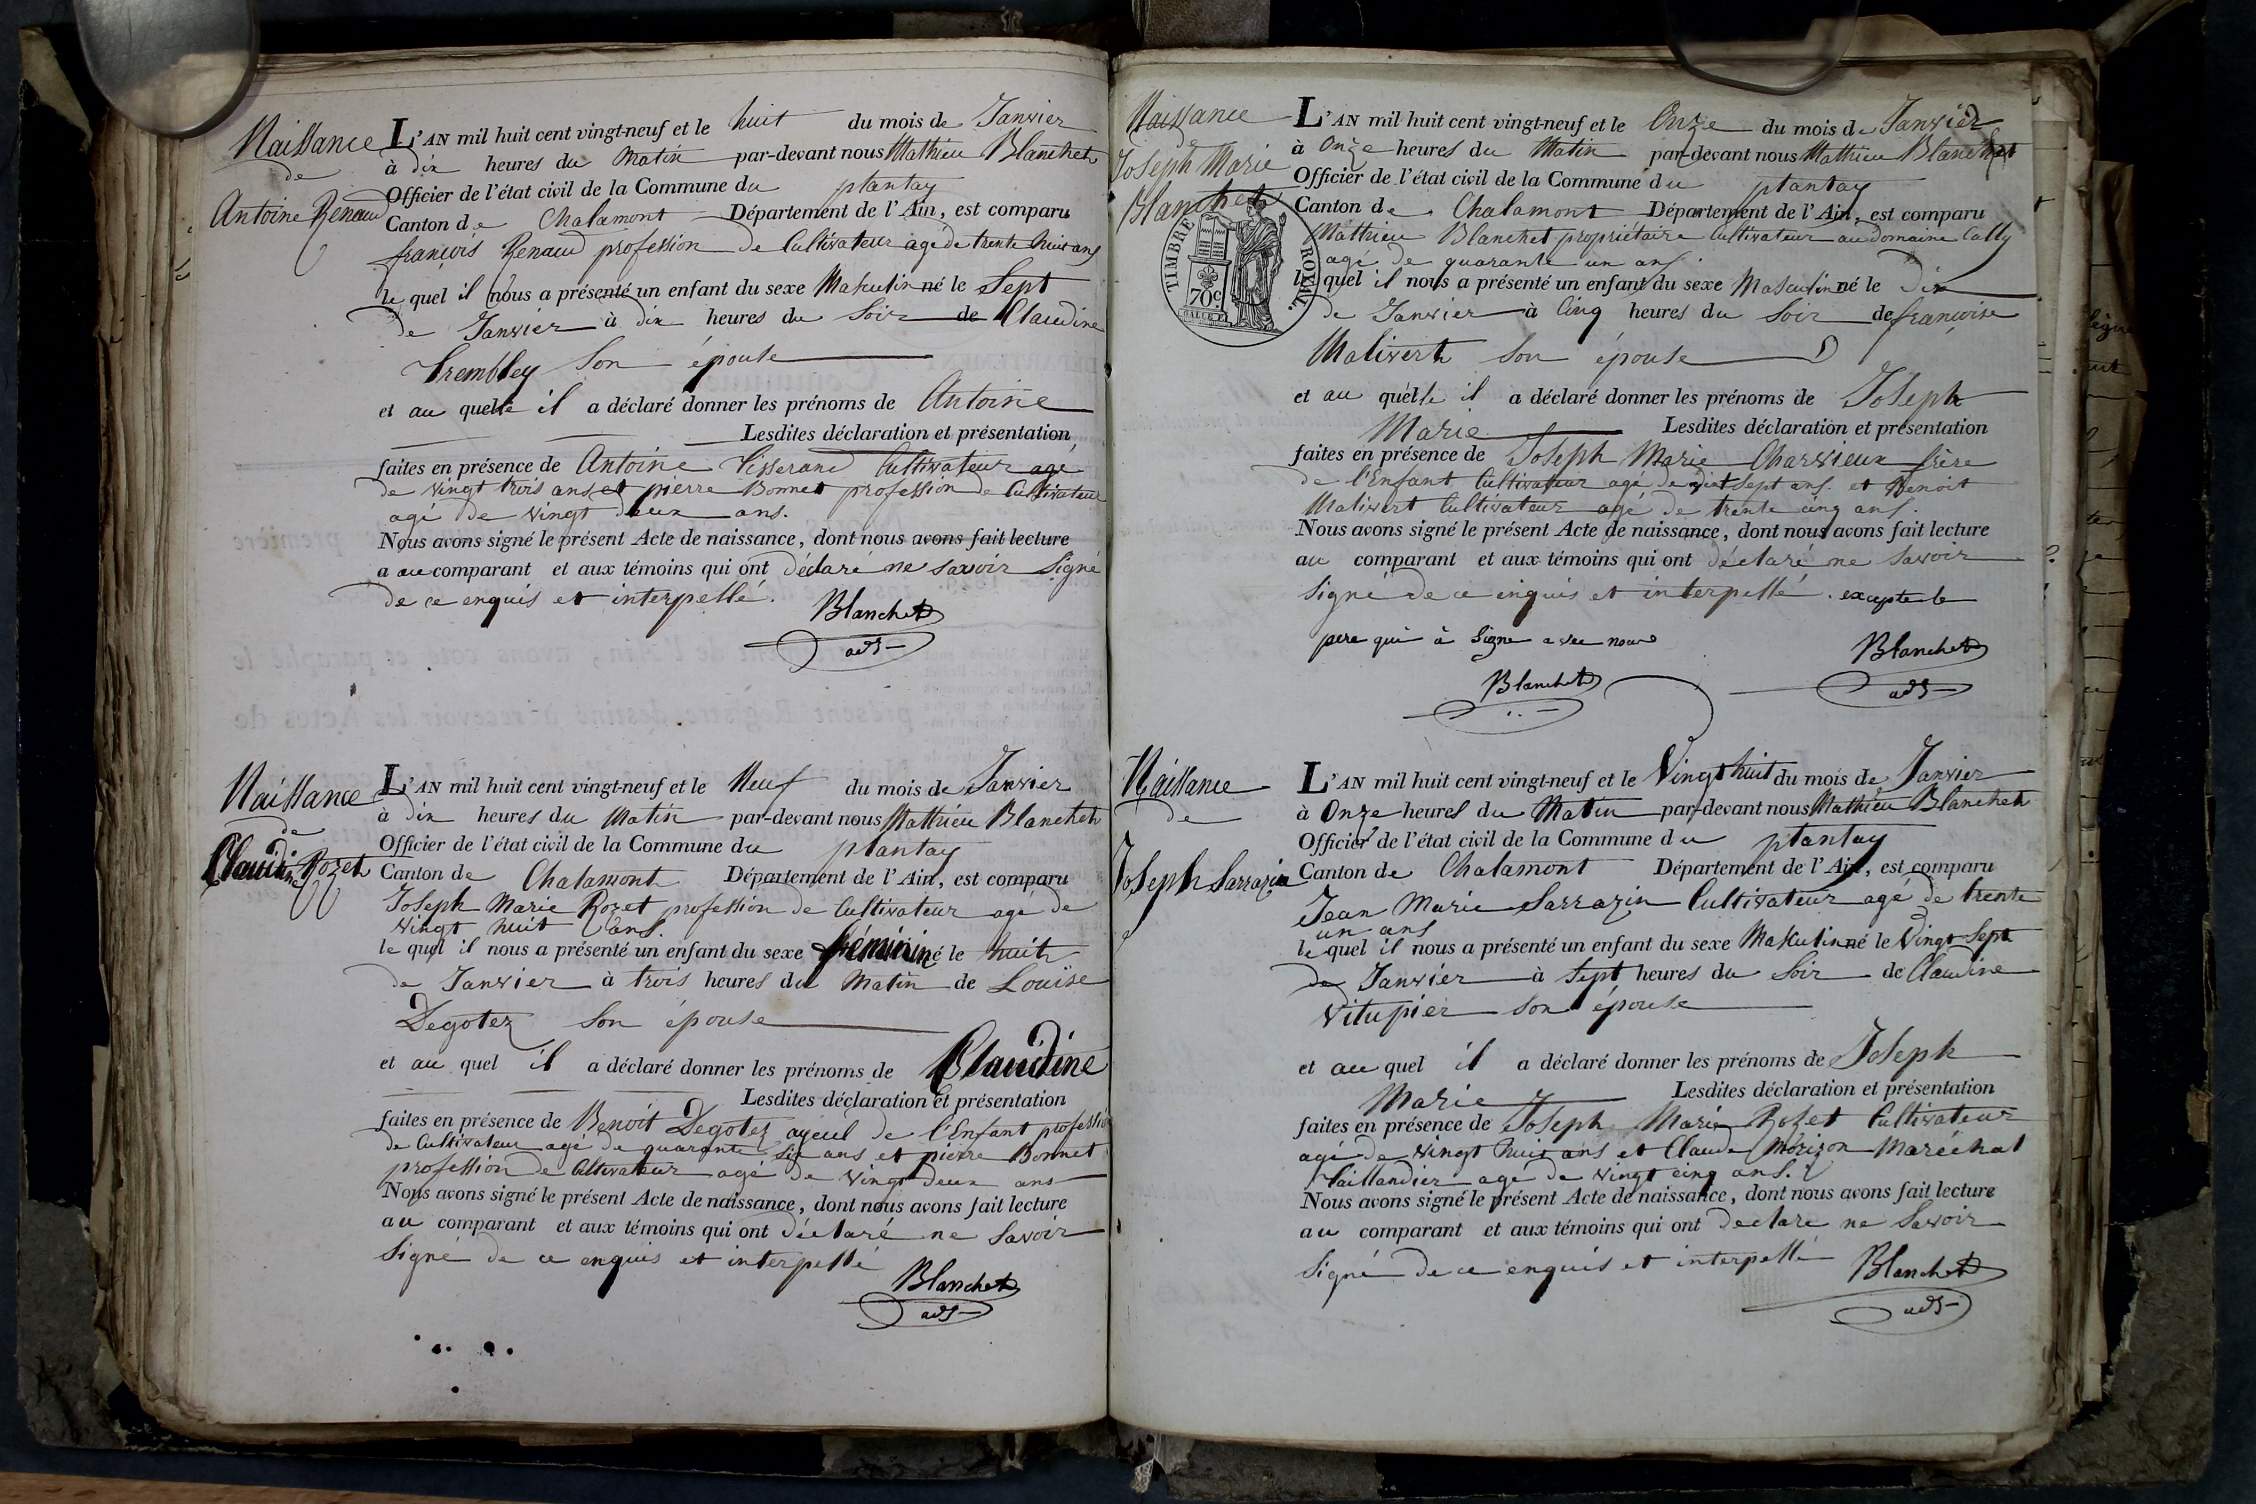 Naissance
de
Antoine Renaud
L'AN mil huit cent vingt-neuf et le huit du mois de Janvier
à dix heures du Matin par-devant nous Mathieu Blanchet
Officier de l'état civil de la Commune du plantay
Canton de Chalamont Département de l'Ain, est comparu
françois Renaud profession de Cultivateur agé de trente huit ans
le quel il nous a présenté un enfant du sexe Masculin né le Sept
de Janvier à dix heures du Soir de Claudine
Trembley Son épouse
et au quelle il a déclaré donner les prénoms de Antoine
Lesdites déclaration et présentation
faites en présence de Antoine Tisserand Cultivateur agé
de vingt trois ans et pierre Bonnet profession de Cultivateur
agé de vingt deux ans.
Nous avons signé le présent Acte de naissance, dont nous avons fait lecture
a au comparant et aux témoins qui ont déclaré ne savoir Signé
de ce enquis et interpellé.
Blanchet
adj
Naissance
de
Claudine Rozet
L'AN mil huit cent vingt-neuf et le Neuf du mois de Janvier
à dix heures du Matin par-devant nous Mathieu Blanchet
Officier de l'état civil de la Commune du plantay
Canton de Chalamont Département de l'Ain, est comparu
Joseph Marie Rozet profession de Cultivateur agé de
vingt huit ans.
le quel il nous a présenté un enfant du sexe féminin né le huit
de Janvier à trois heures du Matin de Louise
Degotez Son épouse
et au quel il a déclaré donner les prénoms de Claudine
Lesdites déclaration et présentation
faites en présence de Benoit Degotez ayeul de l'Enfant profession
de Cultivateur agé de quarante Six ans et pierre Bonnet
profession de Cultivateur agé de vingt deux ans
Nous avons signé le présent Acte de naissance, dont nous avons fait lecture
au comparant et aux témoins qui ont déclaré ne Savoir
Signé de ce enquis et interpellé
Blanchet
adj
Naissance
Joseph Marie
Blanchet
TIMBRE ROYAL
70c
L'AN mil huit cent vingt-neuf et le Onze du mois de Janvier
à Onze heures du Matin par-devant nous Mathieu Blanchet
Officier de l'état civil de la Commune du plantay
Canton de Chalamont Département de l'Ain, est comparu
Mathieu Blanchet propriétaire Cultivateur au domaine Cally
agé de quarante un ans.
le quel il nous a présenté un enfant du sexe Masculin né le Dix
de Janvier à Cinq heures du Soir de françoise
Malivert Son épouse
et au quelle il a déclaré donner les prénoms de Joseph
Marie Lesdites déclaration et présentation
faites en présence de Joseph Marie Charvieux frère
de l'Enfant Cultivateur agé de Sept ans. et Benoit
Malivert Cultivateur agé de trente cinq ans.
Nous avons signé le présent Acte de naissance, dont nous avons fait lecture
au comparant et aux témoins qui ont déclaré ne Savoir
Signé de ce enquis et interpellé. excepte le
pere qui à Signe avec nous
Blanchet
Blanchet
adj
Naissance
de
Joseph Sarrazin
L'AN mil huit cent vingt-neuf et le Vingt huit du mois de Janvier
à Onze heures du Matin par-devant nous Mathieu Blanchet
Officier de l'état civil de la Commune du plantay
Canton de Chalamont Département de l'Ain, est comparu
Jean Marie Sarrazin Cultivateur agé de trente
un ans
le quel il nous a présenté un enfant du sexe Masculin né le Vingt Sept
de Janvier à Sept heures du Soir de Claudine
Vitupier Son épouse
et au quel il a déclaré donner les prénoms de Joseph
Marie Lesdites déclaration et présentation
faites en présence de Joseph Marie Rozet Cultivateur
agé de vingt huit ans et Claude Morizon Maréchal
Taillandier agé de vingt cinq ans.
Nous avons signé le présent Acte de naissance, dont nous avons fait lecture
au comparant et aux témoins qui ont declaré ne Savoir
Signé de ce enquis et interpellé
Blanchet
adj